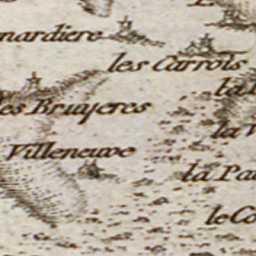 nardiere
les Carrois
es Bruyeres
la
Villeneuve
la Pa
le Co